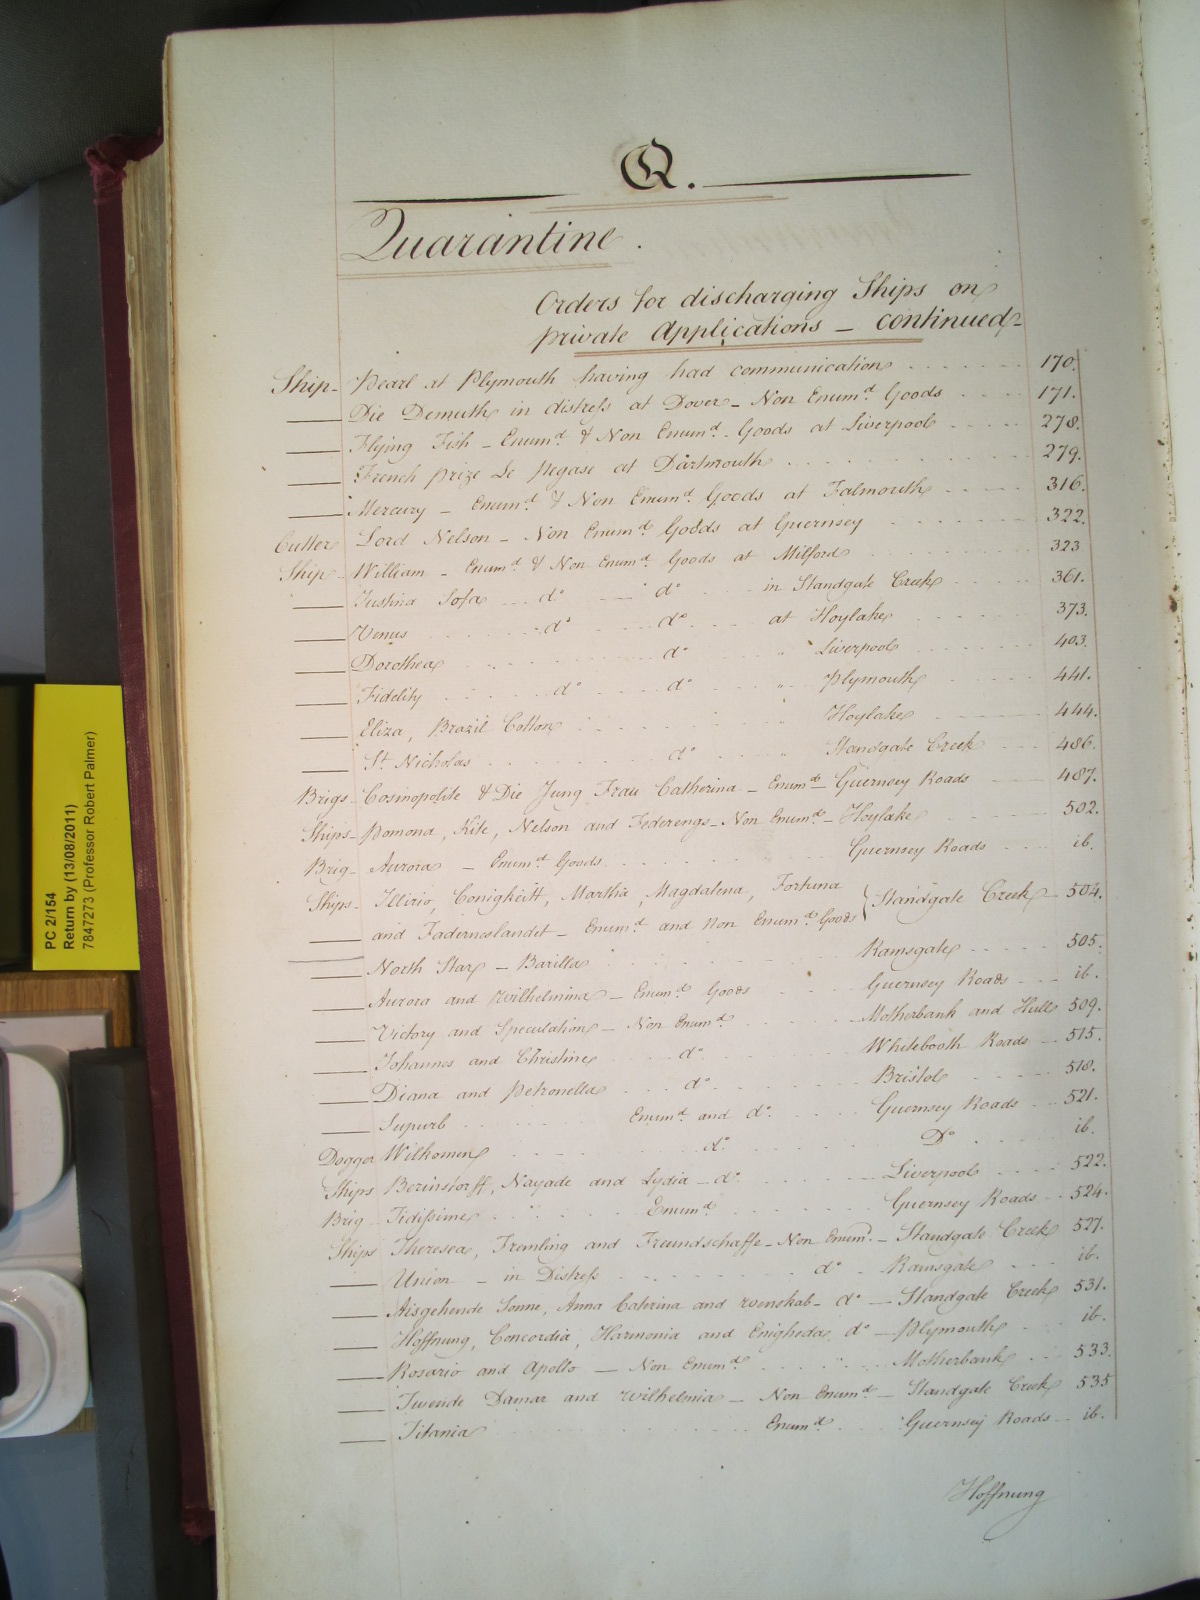 Q.
Quarantine.
Orders for discharging Ships on
private Applications – continued
Ship – Pearl at Plymouth having had communication 170.
Die Demuth in distress at Dover – Non Enum.d Goods 171.
Flying Fish – Enum.d & Non Enum.d Goods at Liverpool 278.
French prize Le Pegase at Dartmouth 279.
Mercury – Enum.d & Non Enum.d Goods at Falmouth 316.
Cutter Lord Nelson – Non Enum.d Goods at Guernsey 322.
Ship – William – Enum.d & Non Enum.d Goods at Milford 323
Justina Sofa do do in Standgate Creek 361.
Venus do do at Hoylake 373.
Dorothea do " Liverpool 403.
Fidelity do do " Plymouth 441.
Eliza, Brazil Cotton " Hoylake 444.
St. Nicholas do " Standgate Creek 486.
Brigs – Cosmopolite & Die Jung Frau Catherina – Enum.d – Guernsey Roads 487.
Ships – Pomona, Kite, Nelson and Federengs – Non Enum.d – Hoylake 502.
Brig – Aurora – Enum.d Goods Guernsey Roads ib.
Ships – Illirio, Conigkeitt, Martha, Magdalena, Fortuna
and Fadernoslandet – Enum.d and Non Enum.d Goods } Standgate Creek – 504.
North Star – Barilla Ramsgate 505.
Aurora and Wilhelmina – Enum.d Goods Guernsey Roads ib.
Victory and Speculation – Non Enum.d Motherbank and Hull 509.
Johannes and Christine do Whitebooth Roads 515.
Diana and Petronella do Bristol 518.
Supurb Enum.d and do Guernsey Roads 521.
Dogger Wilkomen do Do ib.
Ships Berinstorff, Nayade and Lydia – do Liverpool 522.
Brig – Fidissime Enum.d Guernsey Roads 524.
Ships Theresea, Fremling and Freundschaffe – Non Enum.d – Standgate Creek 527.
Union – in Distress do Ramsgate ib.
Aisgehende Sonne, Anna Catrina and Wenskab – do – Standgate Creek 531.
Hoffnung, Concordia, Harmonia and Enigheda do – Plymouth ib.
Rosario and Apollo – Non Enum.d Motherbank 533.
Twende Damar and Wilhelmia – Non Enum.d – Standgate Creek 535
Titania Enum.d Guernsey Roads – ib.
Hoffnung
PC 2/154
Return by (13/08/2011)
7847273 (Professor Robert Palmer)